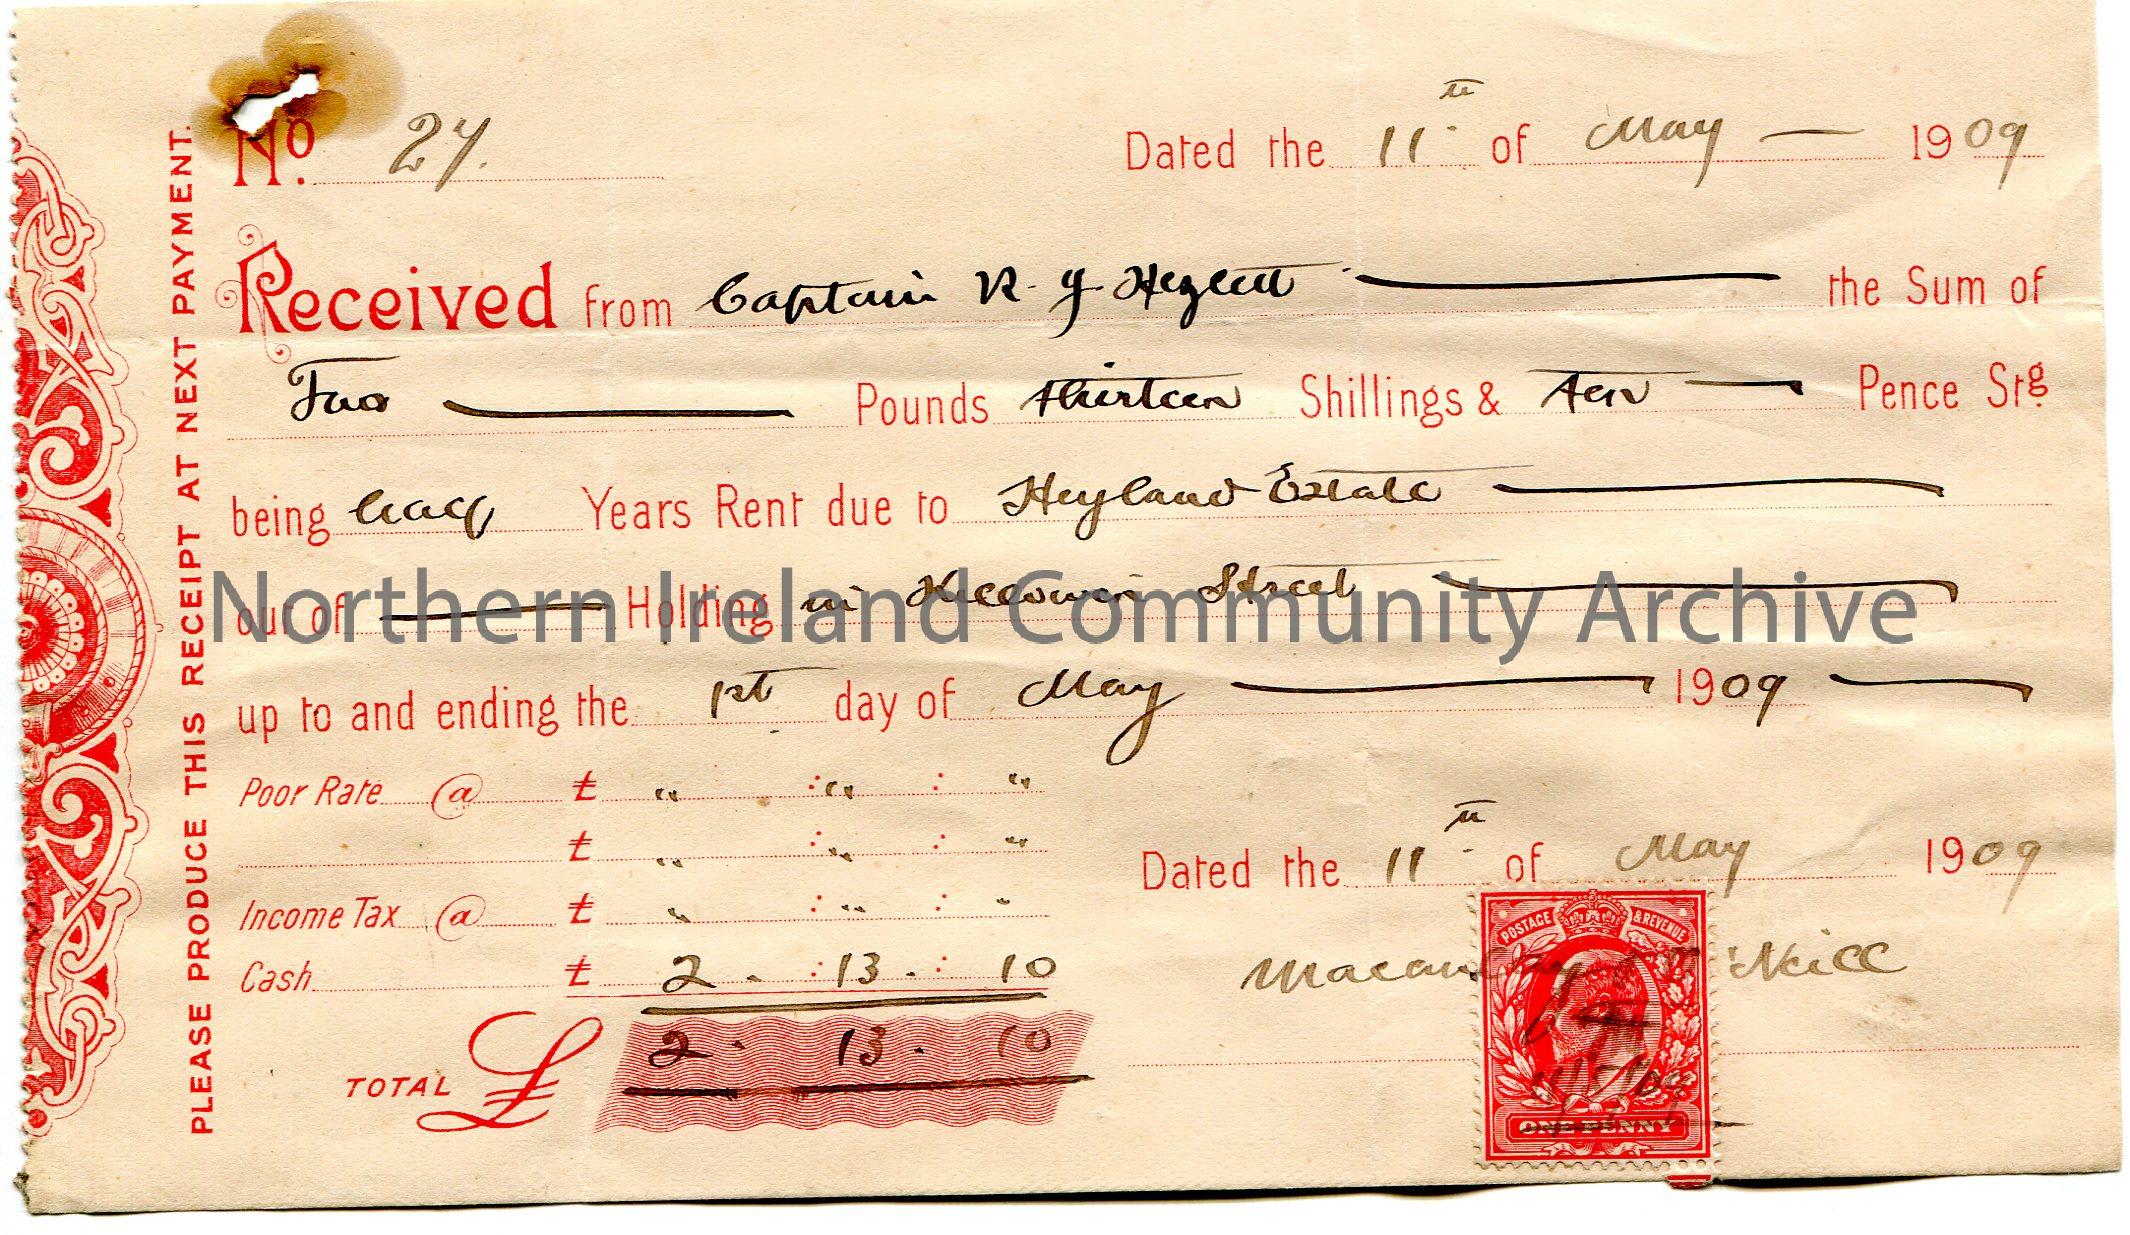 No. 27.
Dated the 11th of May 1909
Received from Captain R. J. Hezlett the Sum of
Two Pounds thirteen Shillings & Ten Pence Stg.
being half Years Rent due to Heyland Estate
out of Holding in Killowen Street
up to and ending the 1st day of May 1909
Poor Rate @ £ " : " : "
£ " : " : "
Income Tax @ £ " : " : "
Cash £ 2 . : 13 . : 10
TOTAL £ 2 . 13 . 10
Dated the 11th of May 1909
POSTAGE & REVENUE
Macaulay
11/5/09
ONE PENNY
PLEASE PRODUCE THIS RECEIPT AT NEXT PAYMENT.
Northern Ireland Community Archive